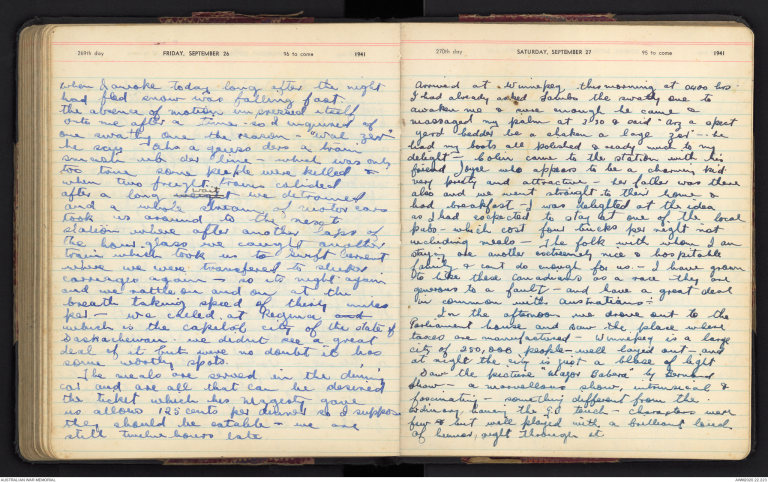 269th day FRIDAY, SEPTEMBER 26 96 to come 1941
When I awoke today long after the night
had fled snow was falling fast
the absence of motion impressed itself
onto me after a time. so I inquired of
one swatty one the reason - "Wal zer"
he says I aha a guess ders a train
smash ub der line - which was only
too true some people were killed
when two freight trains colided
after a long wait we detrained
and a whole stream of motor cars
took us around to the next
station where after another laps of
the hour glass we caught another
train which took us to Swift Current
where we were transfered to sleeper
carrieges again - so its right again
and we rattle on and on at the
breath taking speed of thirty miles
per - we called at Regina and
which is the capitol city of the state of
Saskachewan. we didnt see a great
deal of it but were no doubt it has
some worthy spots
The meals are served in the dining
car and are all that can be desired
the ticket which his Majesty gave
us allows 125 cents per dinner so I suppose
they should be eatable - we are
still twelve hours late
270th day SATURDAY, SEPTEMBER 27 95 to come 1941
Arrived at Winnepeg this morning at 0400 hrs
I had already asked Sambo the swatty one to
awake me & sure enough he came &
massaged my palm at 3.30 & said "Arz a spect
yerd bedder be a shaken a lage zer" - he
had my boots all polished & ready much to my
delight - Colin came to the station with his
friend Joyce who appears to be a charming kid
very pretty and attractive - her father was there
also and we went straight to their home &
had breakfast - I was delighted at the idea
as I had expected to stay at one of the local
pubs - which cost four bucks per night not
including meals - The folk with whom I am
staying are another extremely nice & hospitable
family & can't do enough for us - I have grown
to like these Canadians as a race - they are
generous to a fault - and have a great deal
in common with Australians -
In the afternoon we drove out to the
Parliament house and saw the place where
taxes are manufactured - Winnepeg is a large
city of 250,000 people - well layed out - and
at night the city is just a blaze of light
Saw the picture "Major Babera" by Bernard
Shaw - a marvellous show, whimsical &
fascinating - something different from the
ordinary having the touch - characters were
few & but well played with a brilliant touch
of humor, right through it
AUSTRALIAN WAR MEMORIAL